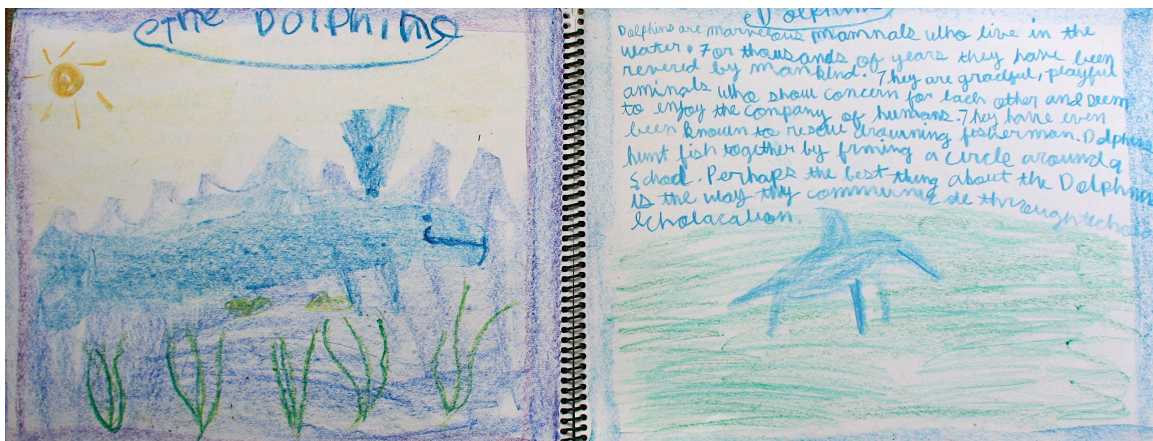 The DOLPHINS
Dolphins
Dolphins are marvelous mammals who live in the
water. For thousands of years they have been
revered by mankind. They are graceful, playful
aminals who show concern for each other and Deem
to enjoy the company of humans. They have even
been known to rescue drowning fisherman. Dolphins
hunt fish together by firming a circle around a
school. Perhaps the best thing about the Dolphins
is the way thy through